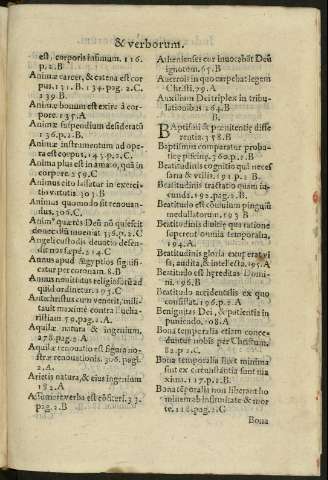 & verborum.
est, corporis insimum. 116.
p. 2. B
Animæ carcer, & catena est cor
pus. 131. B. 134. pag. 2. C.
139. B.
Animæ bonum est exire à cor-
pore. 135. A
Animæ suspendium desideratū
136. p. 1. B.
Animæ instrumentum ad ope-
ra est corpus, 145. p. 2. C.
Anima plus est in amato, quā in
corpore 259. C
Animus cito lassatur in exerci-
tio virtutis. 303. B
Animus quomodo sit renouan-
dus. 306. C.
quærēs Deū nō quiescit
donec dū inueniat. 336. p. 2. C
Angeli custodis deuotio defen-
dit nos sæpè. 214. C
Annus apud Ægyptios signifi-
catur per coronam. 8. B
Annus nouitius religiosus ad
quid ordinetur. 193. C
Antechristus cum venerit, mili-
tabit maximè contra Eucha-
ristiam 59. pag. 2. A.
Aquilæ natura & ingenium,
278. pag. 2. A
Aquilæ renouatio est figura no-
stræ renouationis. 306. pag.
2. A.
Arietis natura, & eius ingenium
182. A
Assumere verba est cōsiteri. 33.
pag. 2. B
Athenienses cur inuocabāt Deū
ignotum. 65. B
Auerrois in quo carpebat legem
Christi. 79. A
Auxilium Dei triplex in tribu-
lationibus 264. B
B.
Baptismi & pœnitentię diffe
rentia. 358. B
Baptismus comparatur proba-
ticę piscinę. 360. p. 2. B
Beatitudinis cognitio quā neces
saria & vtilis. 191. p. 2. B
Beatitudinis tractatio quam iu-
cunda. 192. pag. 2. B.
Beatitudo est conuiuium pinguiū
medullatorum. 193 B
Beatitudinis dulcis qua ratione
superent omnia temporalia,
194. A.
Beatitudinis gloria exuperat vi
sū, auditū, & intellectū. 195. A
Beatitudo est hęreditas Domi-
ni. 196. B
Beatitudo accidentalis ex quo
consistat. 196. p. 2. A
Benignitas Dei, & patientia in
puniendo. 108. A
Bona temporalia etiam conce-
duntur nobis per Christum.
82. p. 2. C.
Bona temporalia licet minima
sint ex circunstantia sunt ma
xima. 127. p. 2. B.
Bona tēporalia non liberant ho
minem ab infirmitate & mor-
te. 128. pag. 2. C
Bona